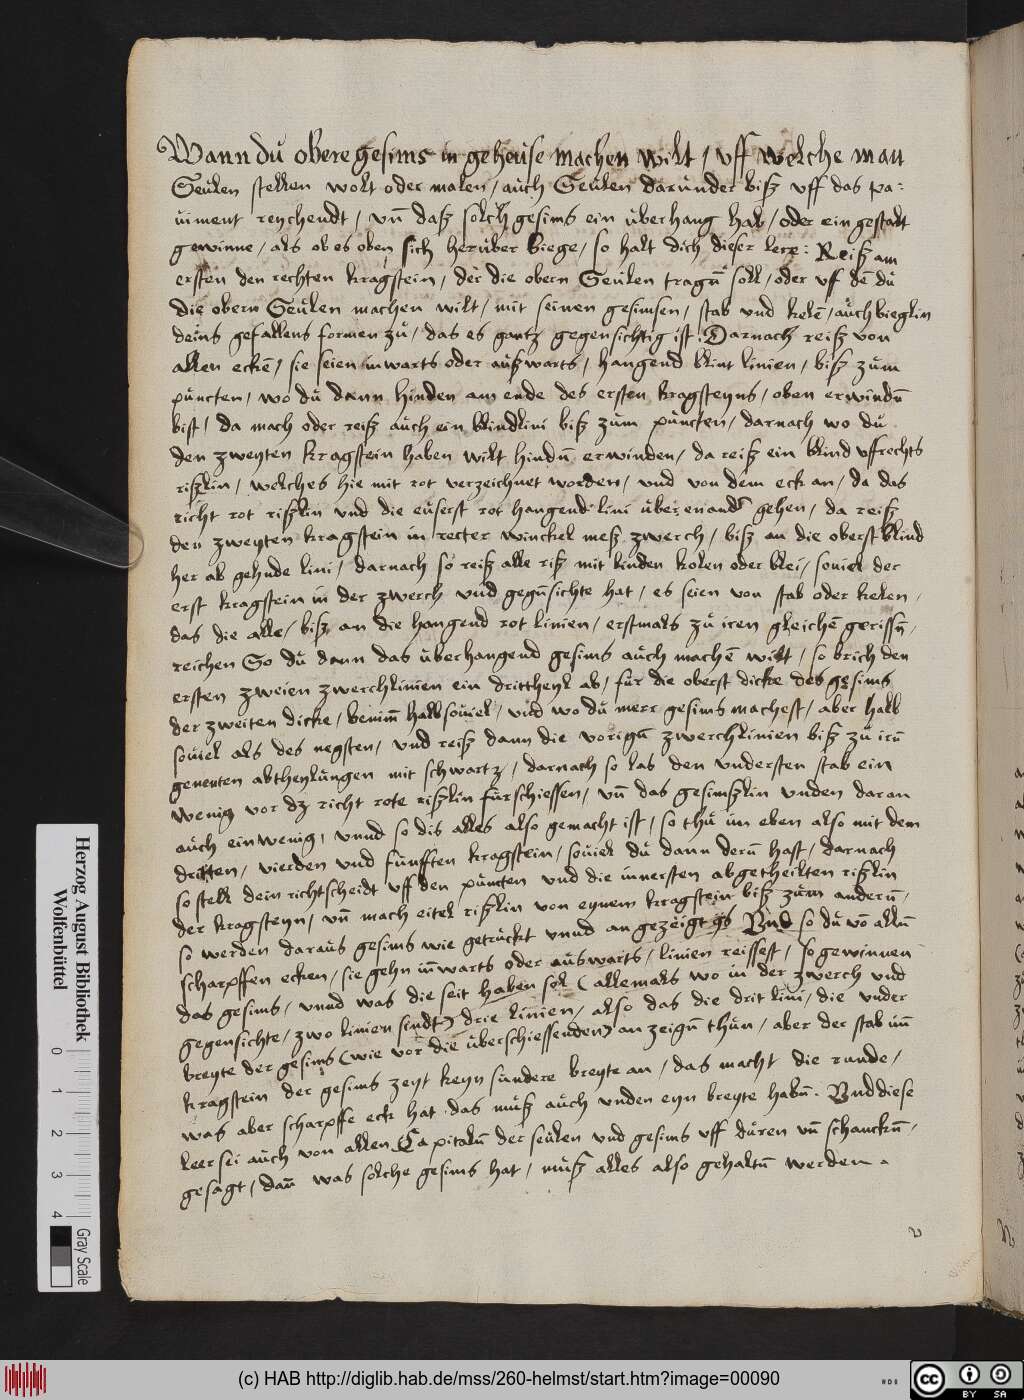 Wann dů obere gesims in geheüse machen wilt / uff welche man
Seülen stellen wolt oder malen / aůch Seülen darůnder biß uff das pa=
uiment reychendt / vn̄ daß solch gesims ein überhang hab / oder ein gestalt
gewinne / als ob es oben sich herüber biege / so halt dich dieser lere: Reiß am
ersten den rechten kragstein / der die obern Seülen tragn̄ soll / oder uf dē dů
die obern Seülen machen wilt / mit seinen gesimsen / stab und kelē / aůch bieglin
deins gefallens formen zů / das es gantz gegensichtig ist. Darnach reiß von
allen eckē / sie seien inwarts oder aůßwarts / hangend blint linien / biß zům
půncten / wo dů dann hinden am ende des ersten kragsteyns / oben erwindn̄
bist / da mach oder reiß aůch ein blindlini biß zům půncten / darnach wo dů
den zweyten kragstein haben wilt hindn̄ erwinden / da reiß ein blind uffrechts
rißlin / welches hie mit rot verzeichnet worden / und von dem eck an / da das
richt rot rißlin und die eüserst rot hangend lini überenand gehen / da reiß
den zweyten kragstein in recter winckel meß zwerch / biß an die oberst blind
her ab gehnde lini / darnach so reiß alle riß mit linden kolen oder blei / souiel der
erst kragstein in der zwerch und gegn̄sichte hat / es seien von stab oder kelen,
das die alle / biß an die hangend rot linien / erstmals zů iren gleichē gerissn̄,
reichen So dů dann das überhangend gesims aůch machē wilt / so brich den
ersten zweien zwerchlinien ein dritthenl ab / für die oberst dicke des gesims
der zweiten dicke / benim̄ halb souiel / und wo dů merr gesims machest / aber halb
souiel als des negsten / und reiß dann die vorign̄ zwerchlinien biß zů irn̄
genenten abtheylůngen mit schwartz / darnach so las den understen stab ein
wenig vor dz richt rote rißlin fürschiessen / vn̄ das gesimßlin unden daran
aůch ein wenig, vnnd so dis alles also gemacht ist / so thů im eben also mit dem
dritten / vierden und fünfften kragstein / souiel dů dann dern̄ hast / darnach
so stell dein richtscheidt uff den půncten und die innersten abgetheilten rißlin
der kragsteyn / vn̄ mach eitel rißlin von eynem kragstein biß zům andern̄,
so werden daraůs gesims wie getrückt vnnd angezeigt Und so dů vō alln̄
scharpffen ecken / sie gehn in̄warts oder aůswarts / linien reissest / so gewinnen
das gesims / vnnd was die seit haben sol (allemals wo in der zwerch und
gegensichte / zwo linien sindt) drie linien / also das die drit lini / die under
breyte der gesims (wie vor die überschiessenden) an zeign̄ thůn / aber der stab im̄
kragstein der gesims zeyt keyn sündere breyte an / das macht die runde /
was aber scharpffe eck hat das můß aůch unden eyn breyte habn̄. Und diese
leer sei aůch von allen Capitaln̄ der seülen und gesims uff düren vn̄ schanckn̄,
gesagt / dan̄ was solche gesims hat / můß alles also gehaltn̄ werden.
Herzog August Bibliothek
Wolfenbüttel
0 1 2 3 4
Gray Scale
(c) HAB http://diglib.hab.de/mss/260-helmst/start.htm?image=00090
cc BY SA